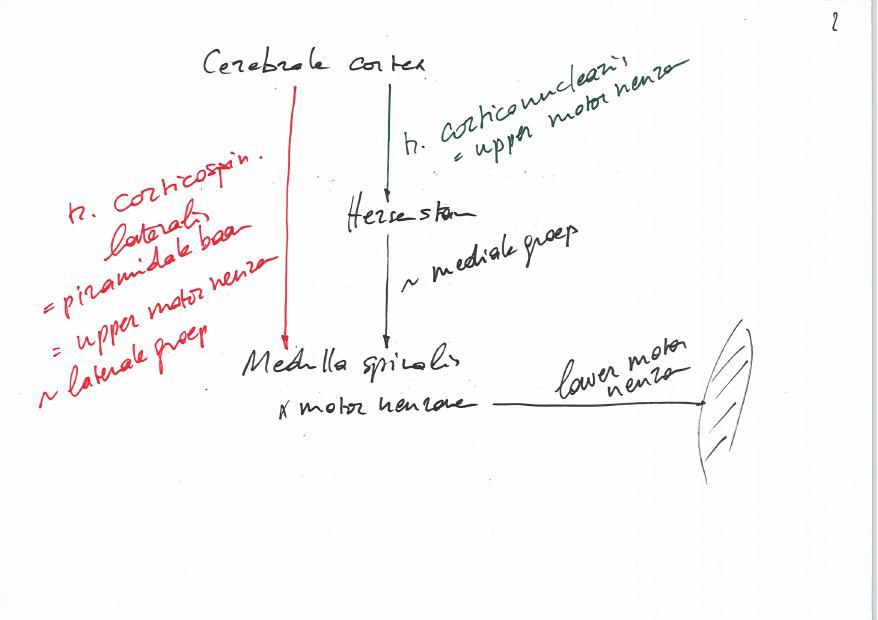 2
Cerebrale cortex
tr. corticonuclearis
= upper motor neuron
tr. corticospin.
lateralis
= piramidale baan
= upper motor neuron
~ laterale groep
Hersenstam
~ mediale groep
Medulla spinalis
motor neurone
lower motor
neuron